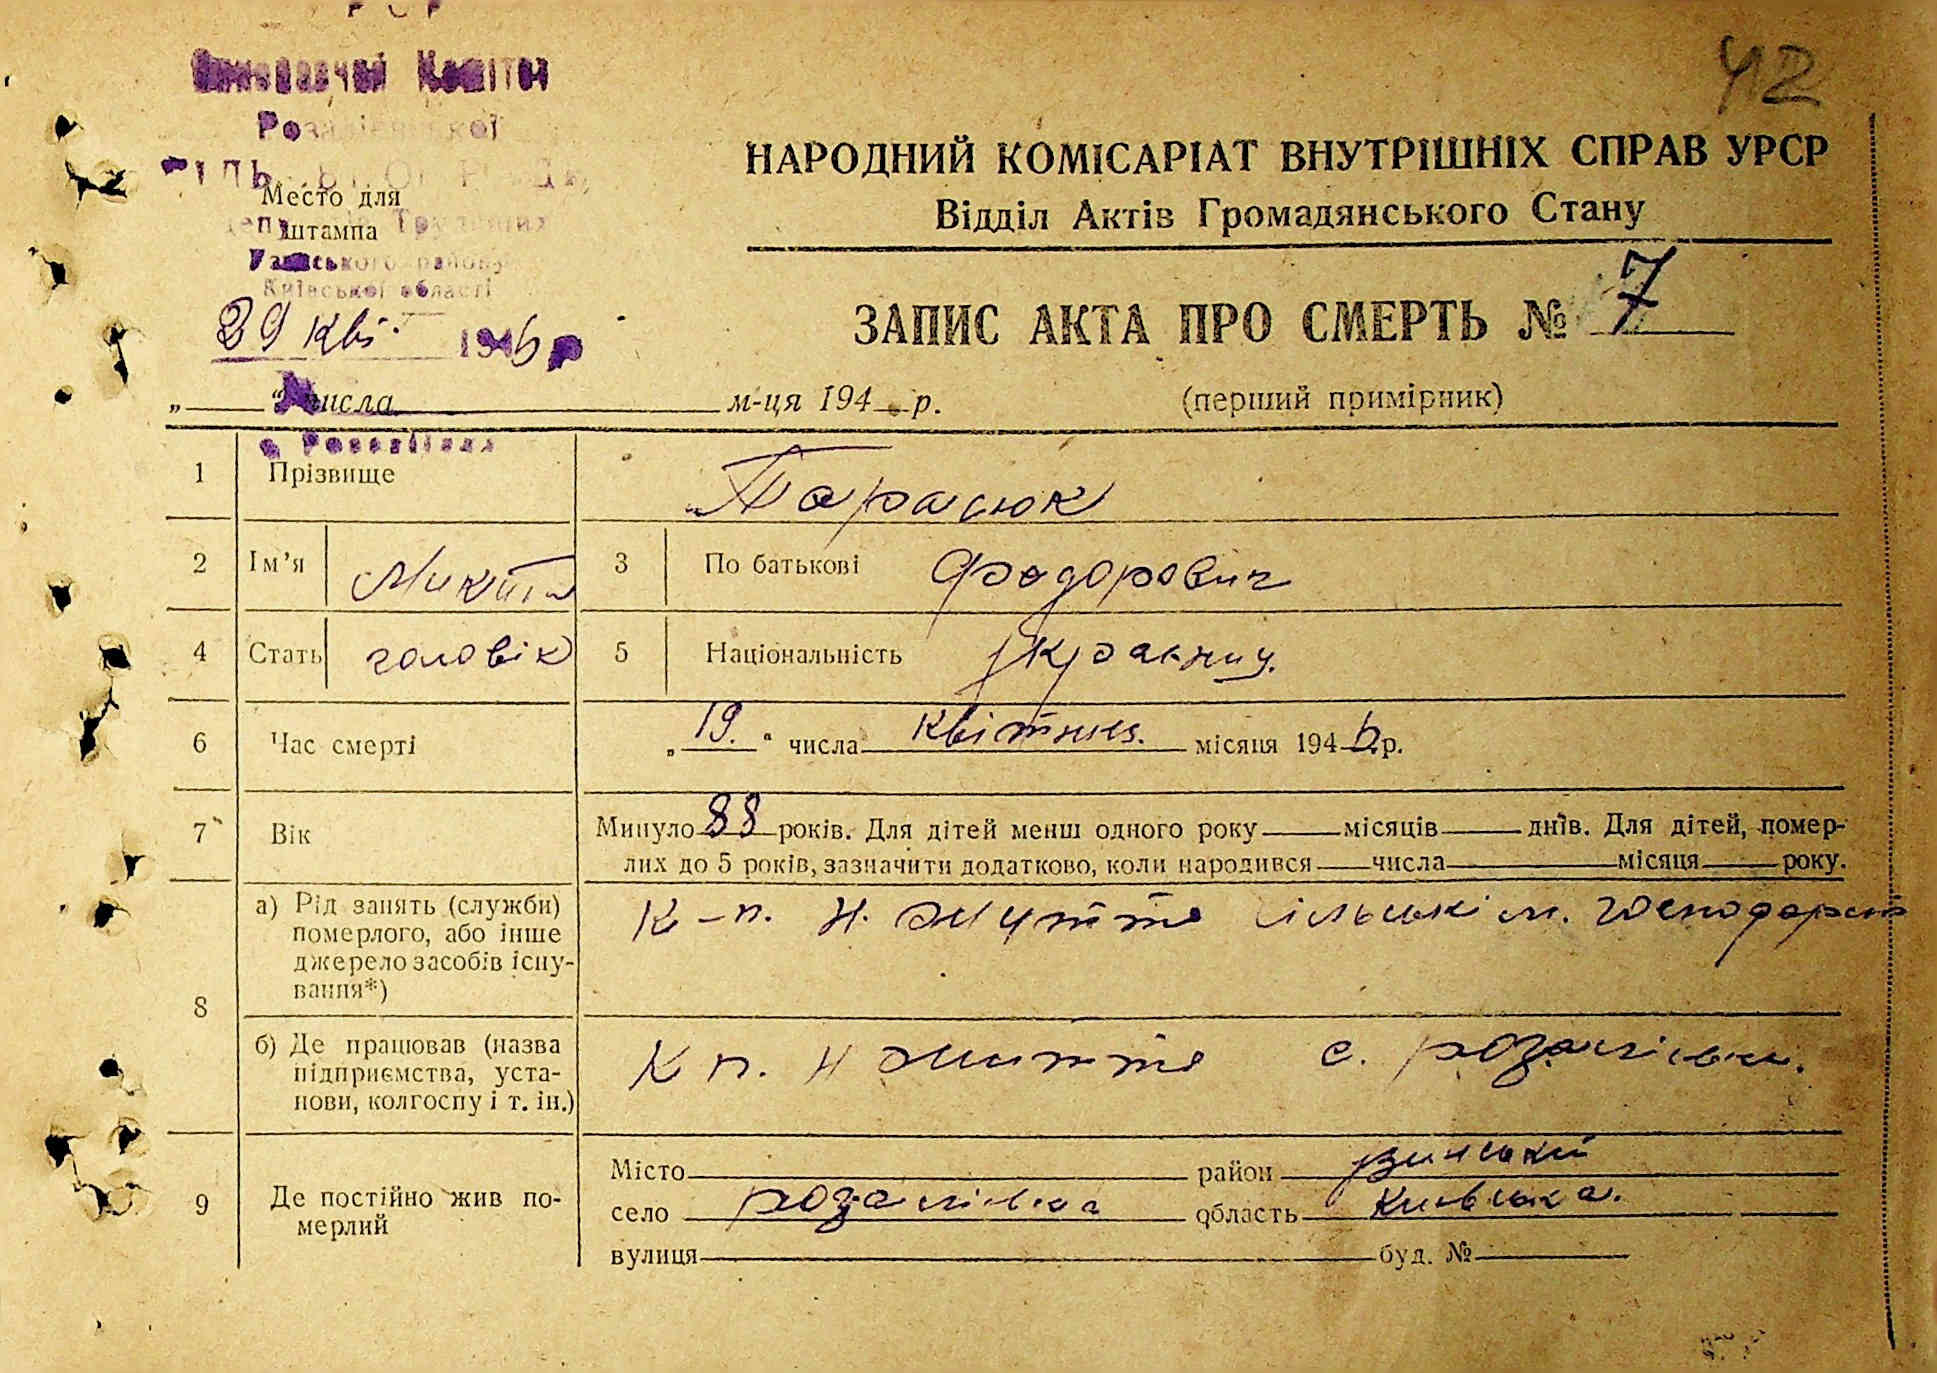 42
Виконавчий Комітет
Розаліївської
Место для
штампа
Трудящих
району
Київської області
29 кві. 1946 р
НАРОДНИЙ КОМІСАРІАТ ВНУТРІШНІХ СПРАВ УРСР
Відділ Актів Громадянського Стану
ЗАПИС АКТА ПРО СМЕРТЬ № 7
„ “ числа м-ця 194 р. (перший примірник)
1 Прізвище Тарасюк
2 Ім’я Микита 3 По батькові Федорович
4 Стать чоловік 5 Національність україниц.
6 Час смерті „19.“ числа квітня. місяця 1946 р.
7 Вік Минуло 88 років. Для дітей менш одного року місяців днів. Для дітей, помер-
лих до 5 років, зазначити додатково, коли народився числа місяця року.
8 а) Рід занять (служби)
померлого, або інше
джерело засобів існу-
вання*)
К-п. Н. життя сільськім. господарст
б) Де працював (назва
підприємства, уста-
нови, колгоспу і т. ін.)
К п. Н життя с. розаліївки.
9 Де постійно жив по-
мерлий
Місто район узинський
село розаліївка область київська.
вулиця буд. №